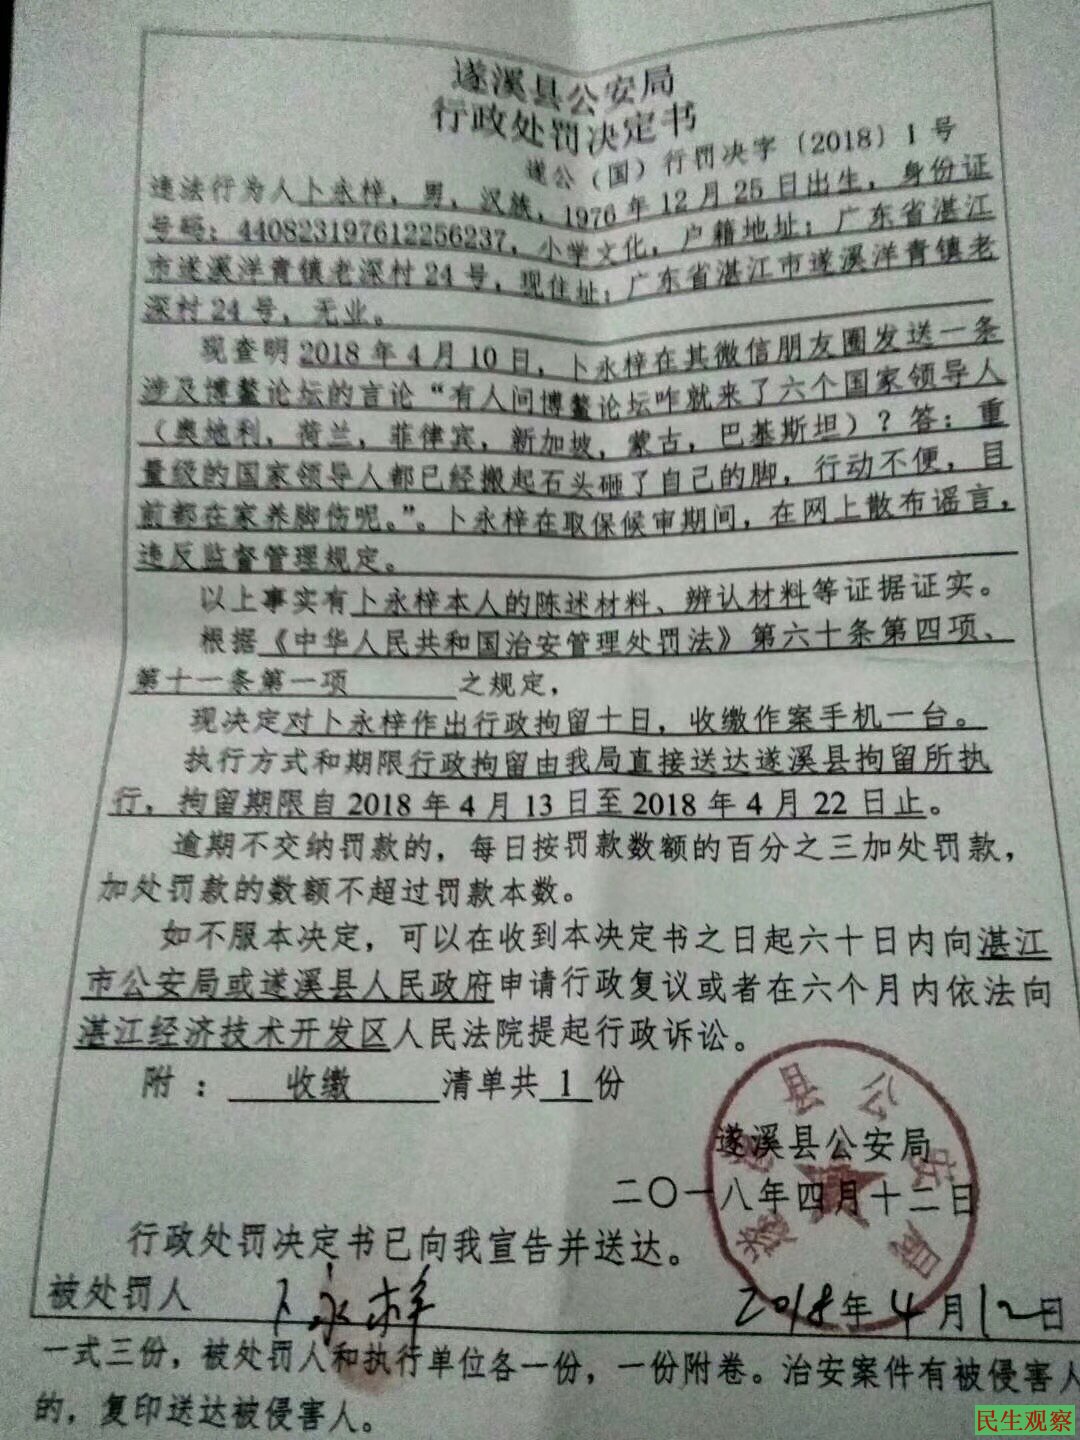 遂溪县公安局
行政处罚决定书
遂公（国）行罚决字〔2018〕1号
违法行为人卜永梓，男，汉族，1976年12月25日出生，身份证
号码：440823197612256237，小学文化，户籍地址：广东省湛江
市遂溪洋青镇老深村24号，现住址：广东省湛江市遂溪洋青镇老
深村24号，无业。
现查明2018年4月10日，卜永梓在其微信朋友圈发送一条
涉及博鳌论坛的言论“有人问博鳌论坛咋就来了六个国家领导人
（奥地利，荷兰，菲律宾，新加坡，蒙古，巴基斯坦）？答：重
量级的国家领导人都已经搬起石头砸了自己的脚，行动不便，目
前都在家养脚伤呢。”。卜永梓在取保候审期间，在网上散布谣言，
违反监督管理规定。
以上事实有卜永梓本人的陈述材料、辨认材料等证据证实。
根据《中华人民共和国治安管理处罚法》第六十条第四项、
第十一条第一项 之规定，
现决定对卜永梓作出行政拘留十日，收缴作案手机一台。
执行方式和期限行政拘留由我局直接送达遂溪县拘留所执
行，拘留期限自2018年4月13日至2018年4月22日止。
逾期不交纳罚款的，每日按罚款数额的百分之三加处罚款，
加处罚款的数额不超过罚款本数。
如不服本决定，可以在收到本决定书之日起六十日内向湛江
市公安局或遂溪县人民政府申请行政复议或者在六个月内依法向
湛江经济技术开发区人民法院提起行政诉讼。
附： 收缴 清单共 1 份
遂溪县公安局
遂溪县公安局
二〇一八年四月十二日
行政处罚决定书已向我宣告并送达。
被处罚人 卜永梓 2018年4月12日
一式三份，被处罚人和执行单位各一份，一份附卷。治安案件有被侵害人
的，复印送达被侵害人。
民生观察